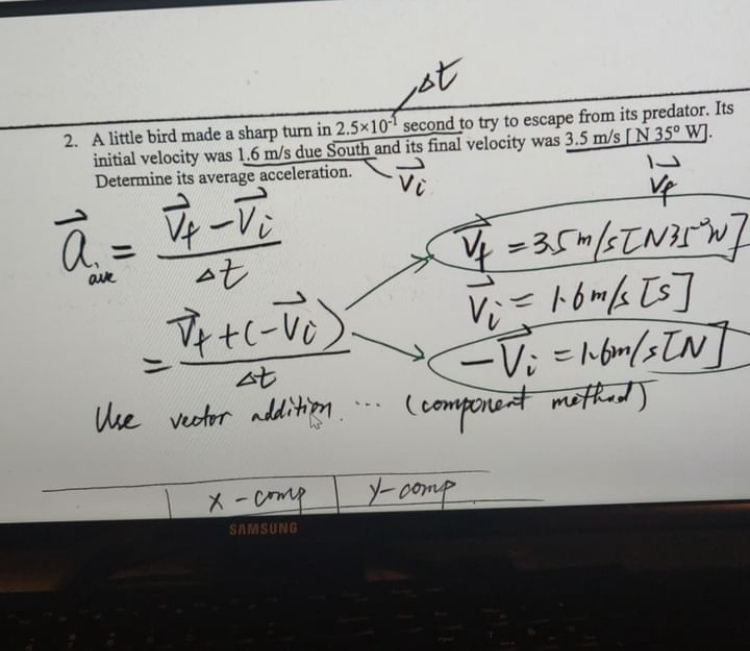 Δt
2. A little bird made a sharp turn in 2.5×10⁻¹ second to try to escape from its predator. Its
initial velocity was 1.6 m/s due South and its final velocity was 3.5 m/s [ N 35° W].
Determine its average acceleration.
v⃗i
v⃗f
a⃗ave = (v⃗f − v⃗i) / Δt
= (v⃗f + (−v⃗i)) / Δt
v⃗f = 3.5 m/s [N35°W]
v⃗i = 1.6 m/s [S]
−v⃗i = 1.6 m/s [N]
Use vector addition ... (component method)
x-comp | y-comp
SAMSUNG